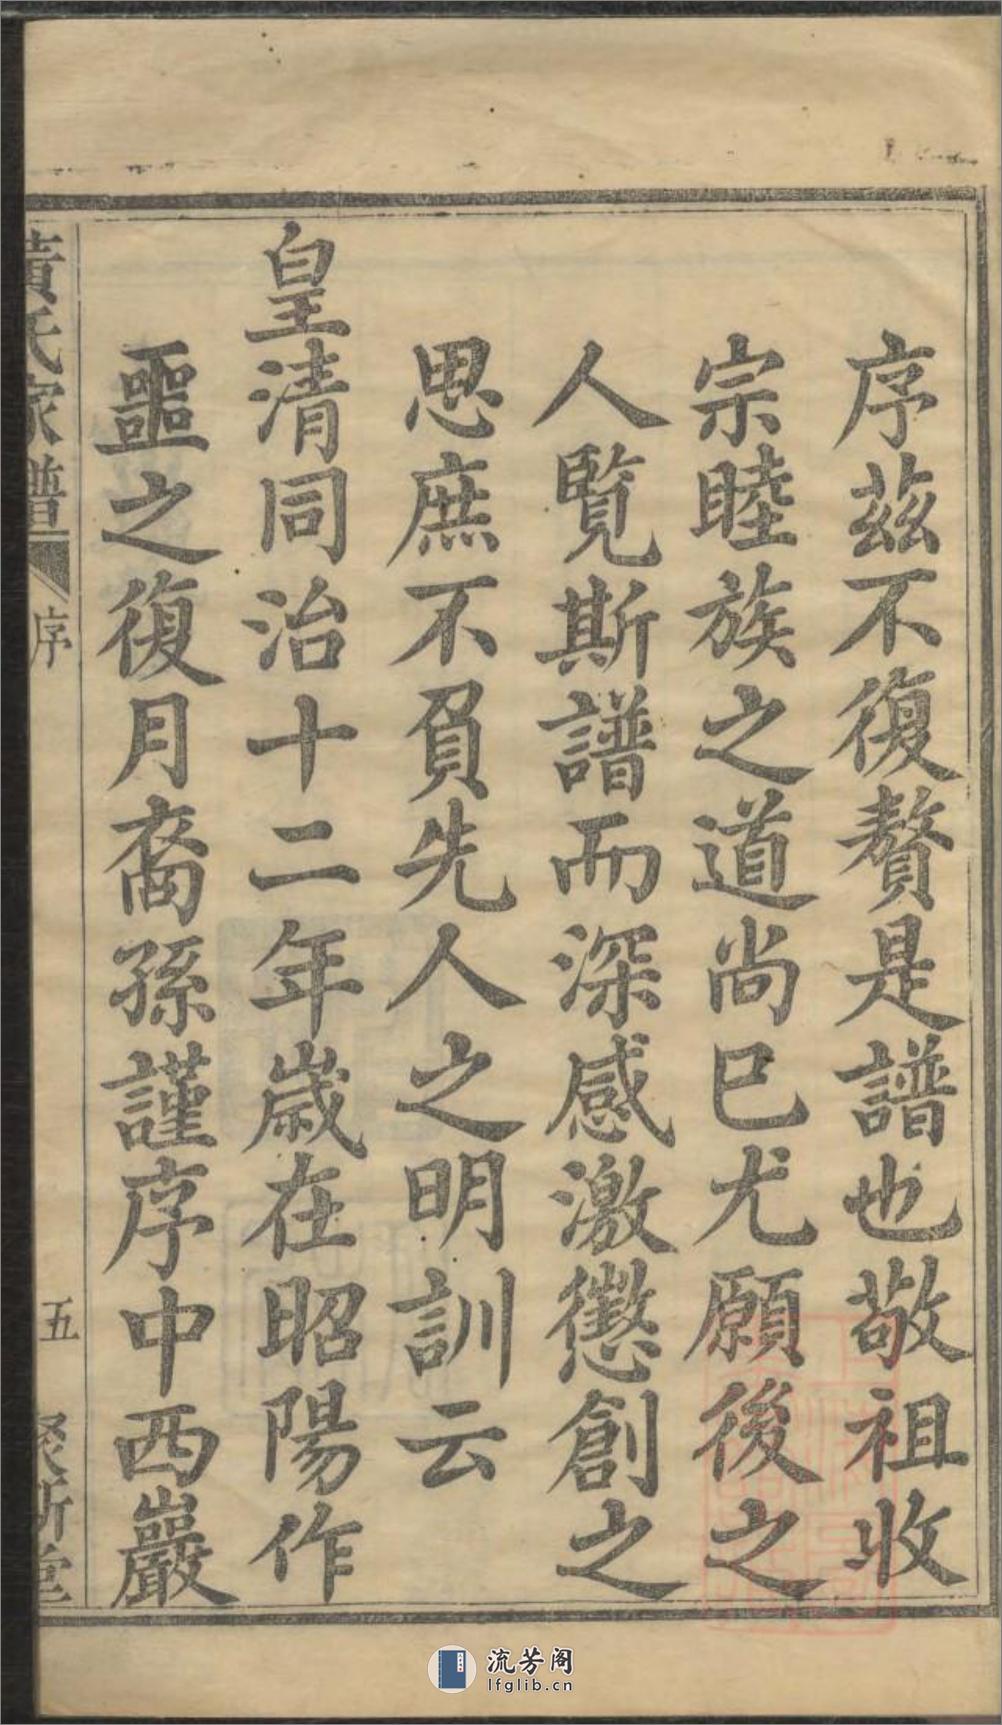 序茲不復贅是譜也敬祖收
宗睦族之道尚巳尤願後之
人覽斯譜而深感激懲創之
思庶不負先人之明訓云
皇清同治十二年歲在昭陽作
噩之復月裔孫謹序中西巖
黃氏家譜
序
五
聚斯堂
流芳阁
lfglib.cn